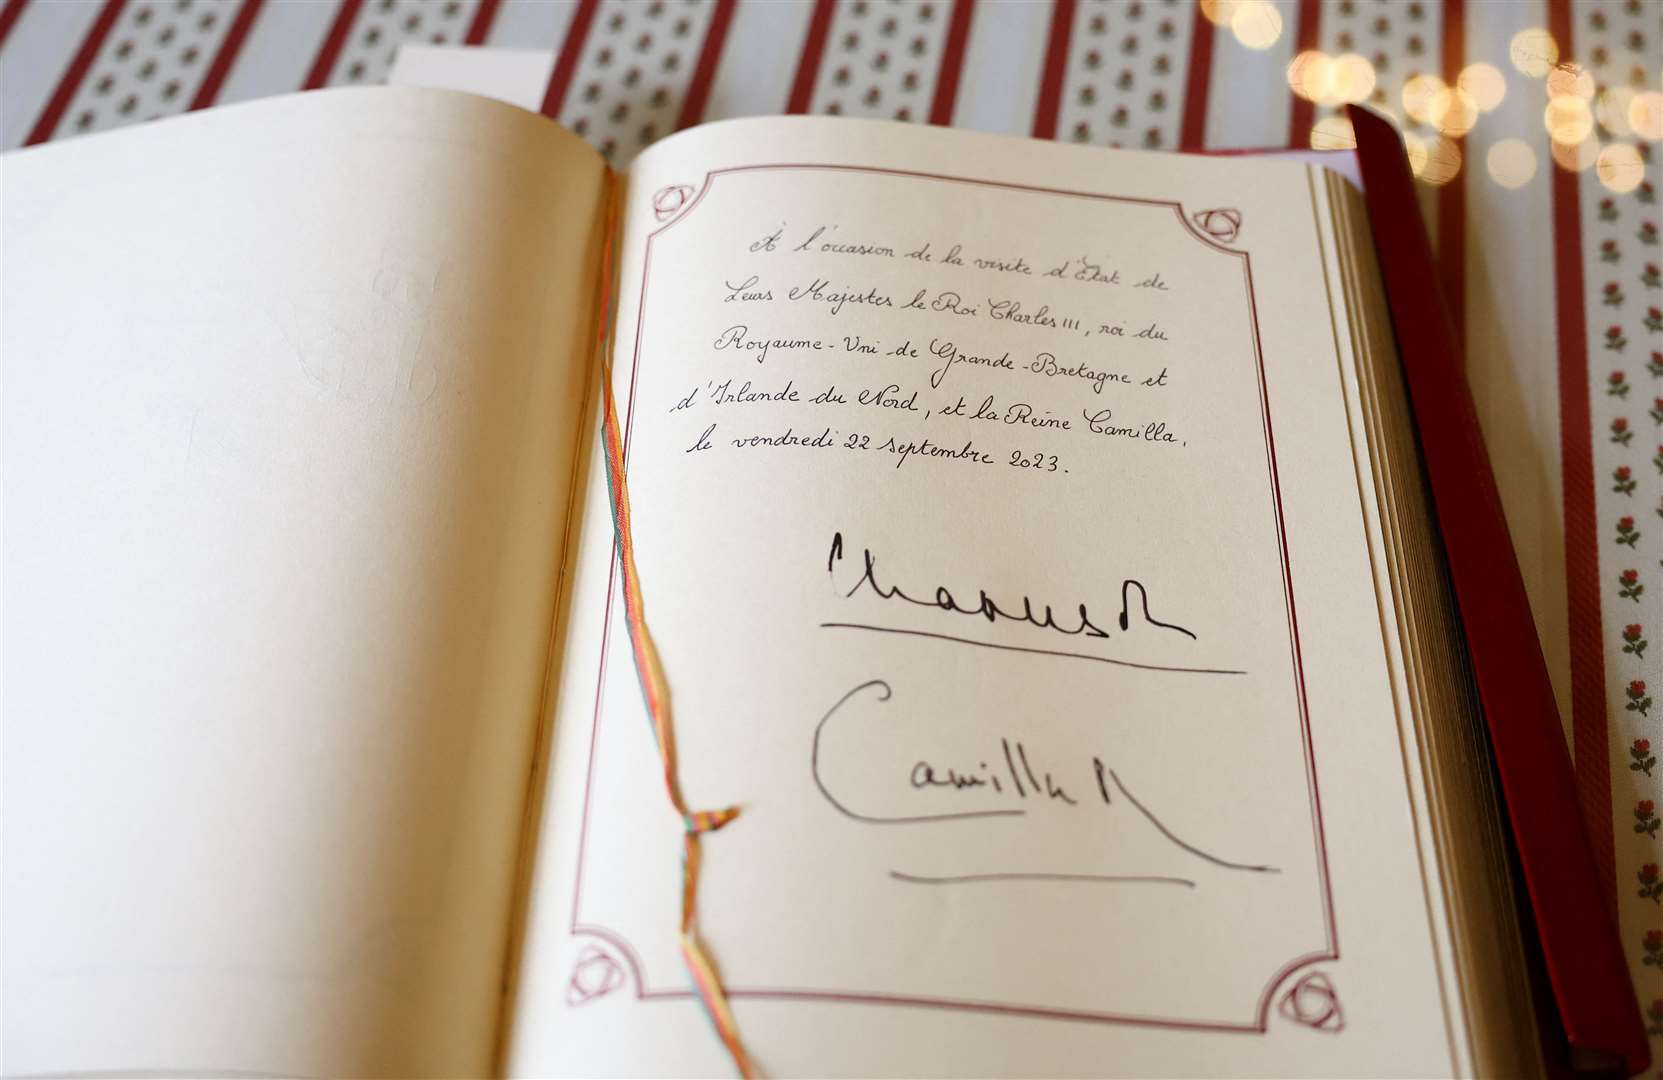 À l'occasion de la visite d'État de
Leurs Majestés le Roi Charles III, roi du
Royaume-Uni de Grande-Bretagne et
d'Irlande du Nord, et la Reine Camilla,
le vendredi 22 septembre 2023.
Charles R
Camilla R